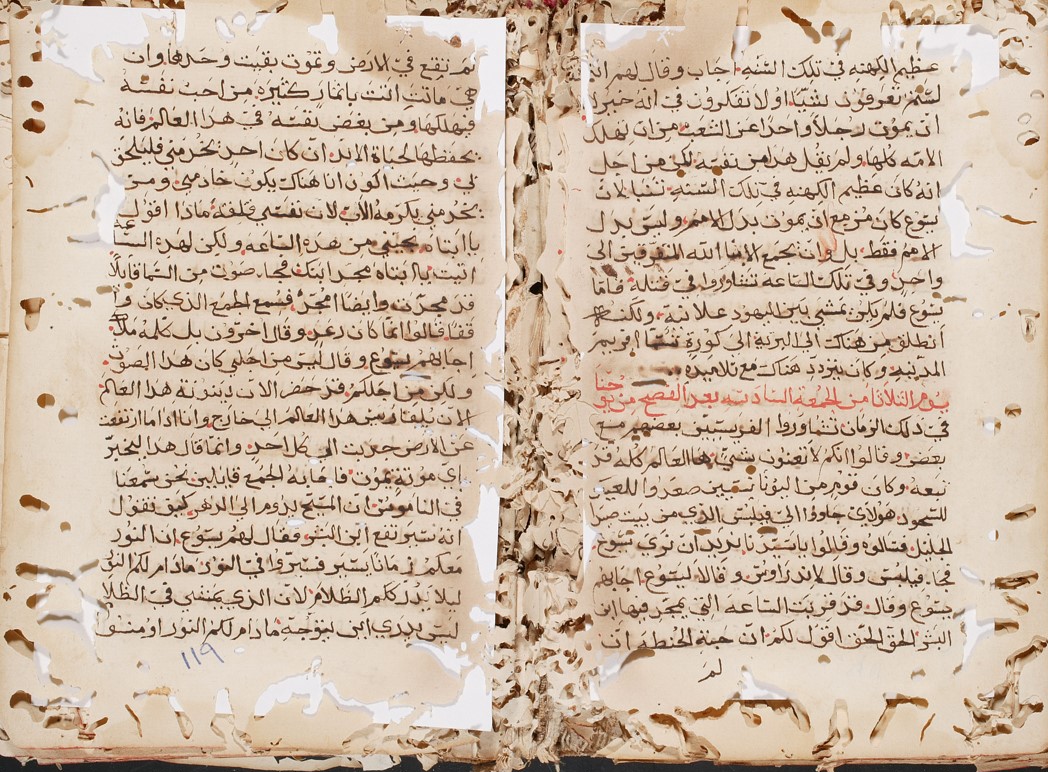 عظيم الكهنه في تلك السنه اجاب وقال لهم
لستم تعرفون شيًا اولا تفكرون في انه خير
ان يموت رجلا واحدا عن الشعب من ان تهلك
الامه كلها ولم يقل هدا من نفسه لكن من اجل
انه كان عظيم الكهنه في تلك السنه تنبا لان
يسوع كان مزمع ان يموت بدل الامم وليس بدل
الامم فقط بل وان يجمع الابنا الله المتفرقين الى
واحد وفي تلك الساعه تشاوروا في قتله فاما
يسوع فلم يكن يمشي بين اليهود علانيه ولكنه
انطلق من هناك الى البريه الى كورة تسما افريم
المدينه وكان يتردد هناك مع تلاميده
يوم الثلاثا من الجمعة السادسه بعد الفصح من يو حنا
في دلك الزمان تشاوروا الفريسيين بعضهم مع
بعض وقالوا انكم لا تغنون شي ها العالم كله قد
تبعه وكان قوم من اليونانيين صعدوا للعيد
للسجود هولاي جاووا الى فيلبس الدي من بيت صيدا
الجليل فسالوه وقالوا ياسيدنا نريد ان نرى يسوع
فجا فيلبس وقال لاندراوس وقالا ليسوع اجابهم
يسوع وقال قد قربت الساعه التي يمجد فيها ابن
البشر الحق الحق اقول لكم ان حبة الحنطه ان
لم
لم تقع في الارض وتموت بقيت وحدها وان
هي ماتت اتت باثمار كثيره من احب نفسه
فيهلكها ومن يغض نفسه في هدا العالم فانه
يحفظها لحياة الابد ان كان احد يخدمني فليلحق
لي وحيت اكون انا هناك يكون خادمي ومن
يخدمني يكرمه الاب الان نفسي قلقه مادا اقول
يا ابتاه نجيني من هده الساعه ولكن لهده الساعه
اتيت يا ابتاه مجد ابنك فجا صوت من السما قايلا
قد مجدت وايضا امجد فسمع الجمع الدي كان
فقالوا انما كان رعد وقال اخرون بل كلمه ملاك
اجابهم يسوع وقال ليس من اجلي كان هدا الصوت
ولكن من اجلكم قد حضر الان دينونة هدا العالم
الان يلقا رييس هدا العالم الى خارج وانا ادا ما ارتفعت
عن الارض جدبت الي كل احد وانما قال هدا ليخبر
اي موتة يموت فاجابه الجمع قايلين نحن سمعنا
في الناموس ان المسيح يدوم الى الدهر كيف تقول
انه سيرتفع ابن البشر فقال لهم يسوع ان النور
معكم زمانا يسير فسيروا في النور مادام لكم النور
ليلا يدرككم الظلام لان الدي يمشي في الظلام
ليس يدري اين يتوجه مادام لكم النور اومنوا
١١٩